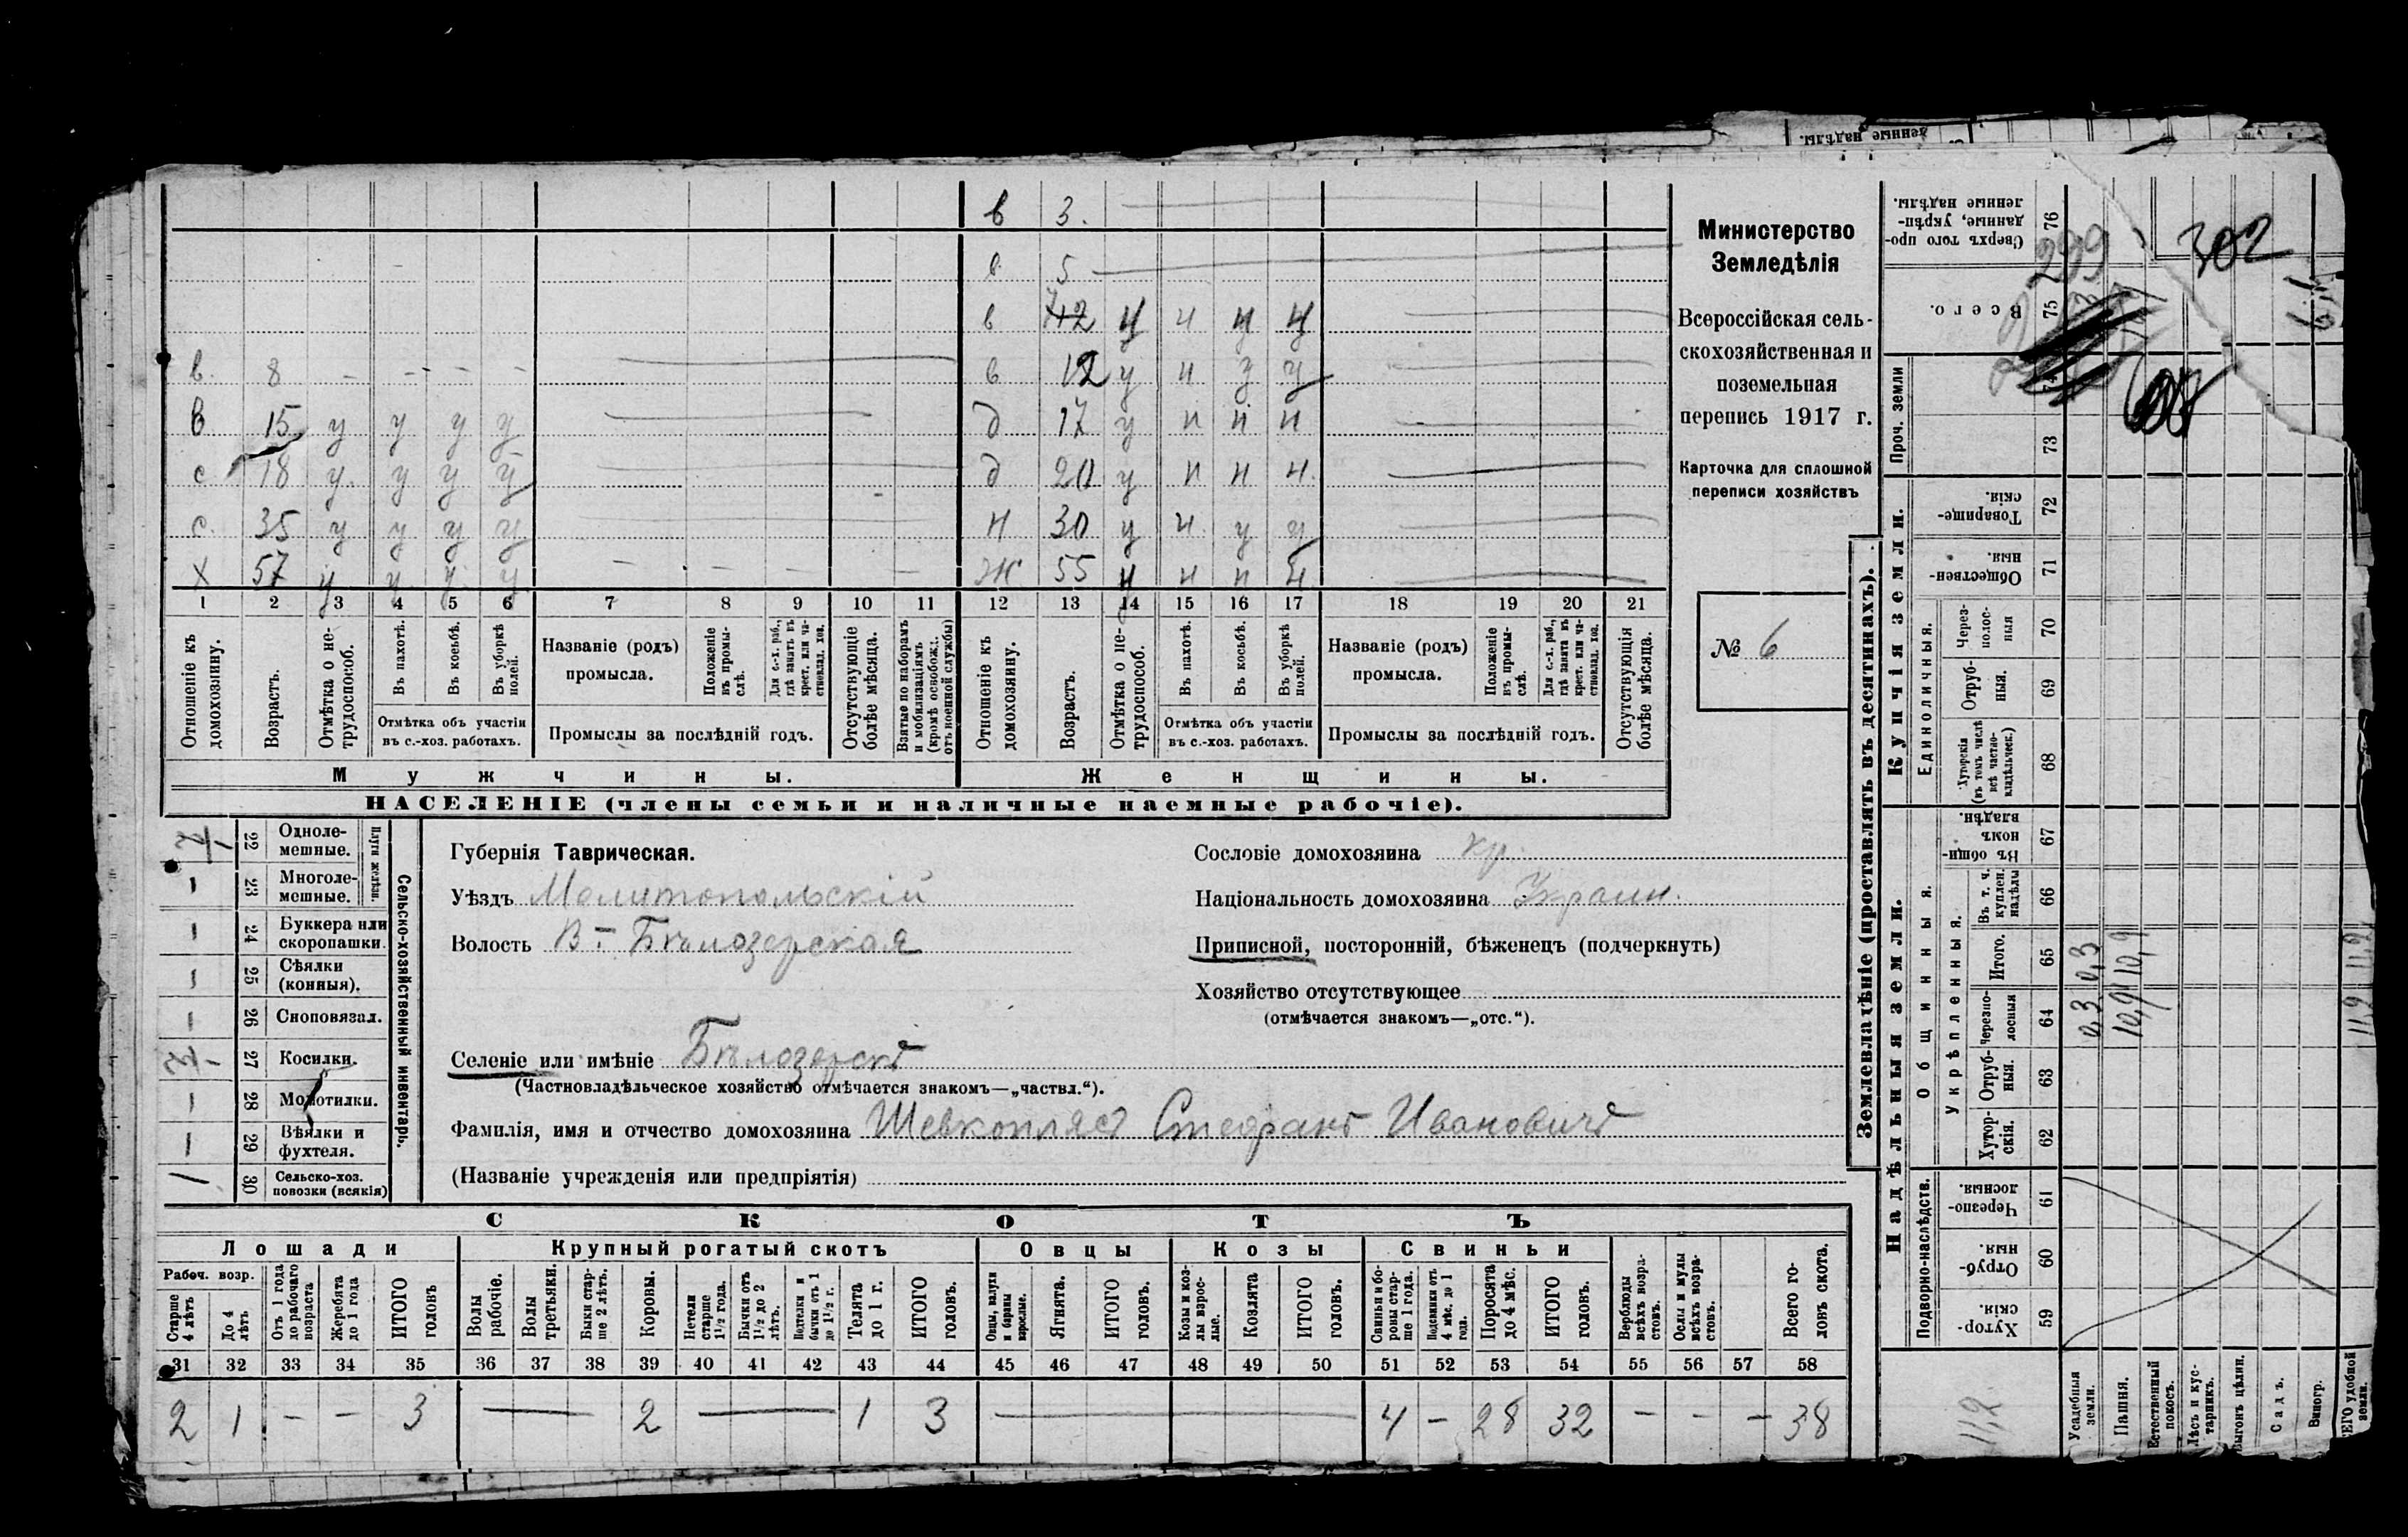 в 3.
в 5
в 7 12 у н н н
в. 8 — — — — в 12 у н з у
в 15 у у у у д 17 у н н н
с 18 у у у у д 20 у н н н
с. 35 у у у у н 30 у н у у
х 57 у у у у ж 55 н н н н
1 2 3 4 5 6 7 8 9 10 11 12 13 14 15 16 17 18 19 20 21
Отношеніе къ домохозяину.
Возрастъ.
Отмѣтка о нетрудоспособ.
Въ пахотѣ.
Въ косьбѣ.
Въ уборкѣ полей.
Отмѣтка объ участіи въ с.-хоз. работахъ.
Названіе (родъ) промысла.
Положеніе въ промыслѣ.
Для с.-х. раб., гдѣ занятъ въ крест. или частновлад. хоз.
Промыслы за послѣдній годъ.
Отсутствующіе болѣе мѣсяца.
Взятые по наборамъ и мобилизаціямъ (кромѣ освобожд. отъ военной службы)
Отношеніе къ домохозяину.
Возрастъ.
Отмѣтка о нетрудоспособ.
Въ пахотѣ.
Въ косьбѣ.
Въ уборкѣ полей.
Отмѣтка объ участіи въ с.-хоз. работахъ.
Названіе (родъ) промысла.
Положеніе въ промыслѣ.
Для с.-х. раб., гдѣ занятъ въ крест. или частновлад. хоз.
Промыслы за послѣдній годъ.
Отсутствующія болѣе мѣсяца.
Мужчины. Женщины.
НАСЕЛЕНІЕ (члены семьи и наличные наемные рабочіе).
Министерство
Земледѣлія
Всероссійская сель-
скохозяйственная и
поземельная
перепись 1917 г.
Карточка для сплошной
переписи хозяйствъ
№ 6
Сельско-хозяйственный инвентарь.
Плуги желѣзн.
22 Однолемешные.
23 Многолемешные.
24 Буккера или скоропашки.
25 Сѣялки (конныя).
26 Сноповязал.
27 Косилки.
28 Молотилки.
29 Вѣялки и фухтеля.
30 Сельско-хоз. повозки (всякія)
Губернія Таврическая.
Уѣздъ Мелитопольскій
Волость В-Бѣлозерская
Селеніе или имѣніе Бѣлозерск
(Частновладѣльческое хозяйство отмѣчается знакомъ—„частвл.“).
Фамилія, имя и отчество домохозяина Шевкопляс Стефанъ Ивановичъ
(Названіе учрежденія или предпріятія)
Сословіе домохозяина кр.
Національность домохозяина Украин.
Приписной, посторонній, бѣженецъ (подчеркнуть)
Хозяйство отсутствующее
(отмѣчается знакомъ—„отс.“).
СКОТЪ
Лошади Крупный рогатый скотъ Овцы Козы Свиньи
Рабоч. возр.
Старше 4 лѣтъ
До 4 лѣтъ
Отъ 1 года до рабочаго возраста
Жеребята до 1 года
ИТОГО головъ
Волы рабочіе.
Волы третьяки.
Быки старше 2 лѣтъ.
Коровы.
Нетели старше 1½ года.
Бычки отъ 1½ до 2 лѣтъ.
Подтелки и бычки отъ 1 до 1½ г.
Телята до 1 г.
ИТОГО головъ.
Овцы, валухи и бараны взрослые.
Ягнята.
ИТОГО головъ.
Козы и козлы взрослые.
Козлята
ИТОГО головъ.
Свиньи и боровы старше 1 года.
Подсвинки отъ 4 мѣс. до 1 года.
Поросята до 4 мѣс.
ИТОГО головъ.
Верблюды всѣхъ возрастовъ.
Ослы и мулы всѣхъ возрастовъ.
Всего головъ скота.
31 32 33 34 35 36 37 38 39 40 41 42 43 44 45 46 47 48 49 50 51 52 53 54 55 56 57 58
2 1 — — 3 — 2 — 1 3 — 4 — 28 32 — — — 38
Землевладѣніе (проставлять въ десятинахъ).
Надѣльныя земли.
Купчія земли.
Проч. земли
Подворно-наслѣдств.
Общинныя.
Укрѣпленныя.
Единоличныя.
59 Хуторскія
60 Отрубныя
61 Черезполосныя.
62 Хуторскія.
63 Отрубныя.
64 Черезполосныя
65 Итого.
66 Въ т. ч. куплен. надѣлы
67 Въ общинномъ владѣн.
68 Хуторскія (въ томъ числѣ всѣ частновладѣльческ.)
69 Отрубныя.
70 Черезполосныя
71 Общественныя.
72 Товарищескія.
73
74
75 Всего.
76 Сверхъ того проданные, укрѣпленные надѣлы.
Усадебныя земли.
0,3 0,3
Пашня.
10,9 10,9
Естественный покосъ.
Лѣсъ и кустарникъ.
Выгонъ цѣлин.
Садъ.
Виногр.
ЕГО удобной земли.
11,2 11,2
11,2
299
302
денные надѣлы.